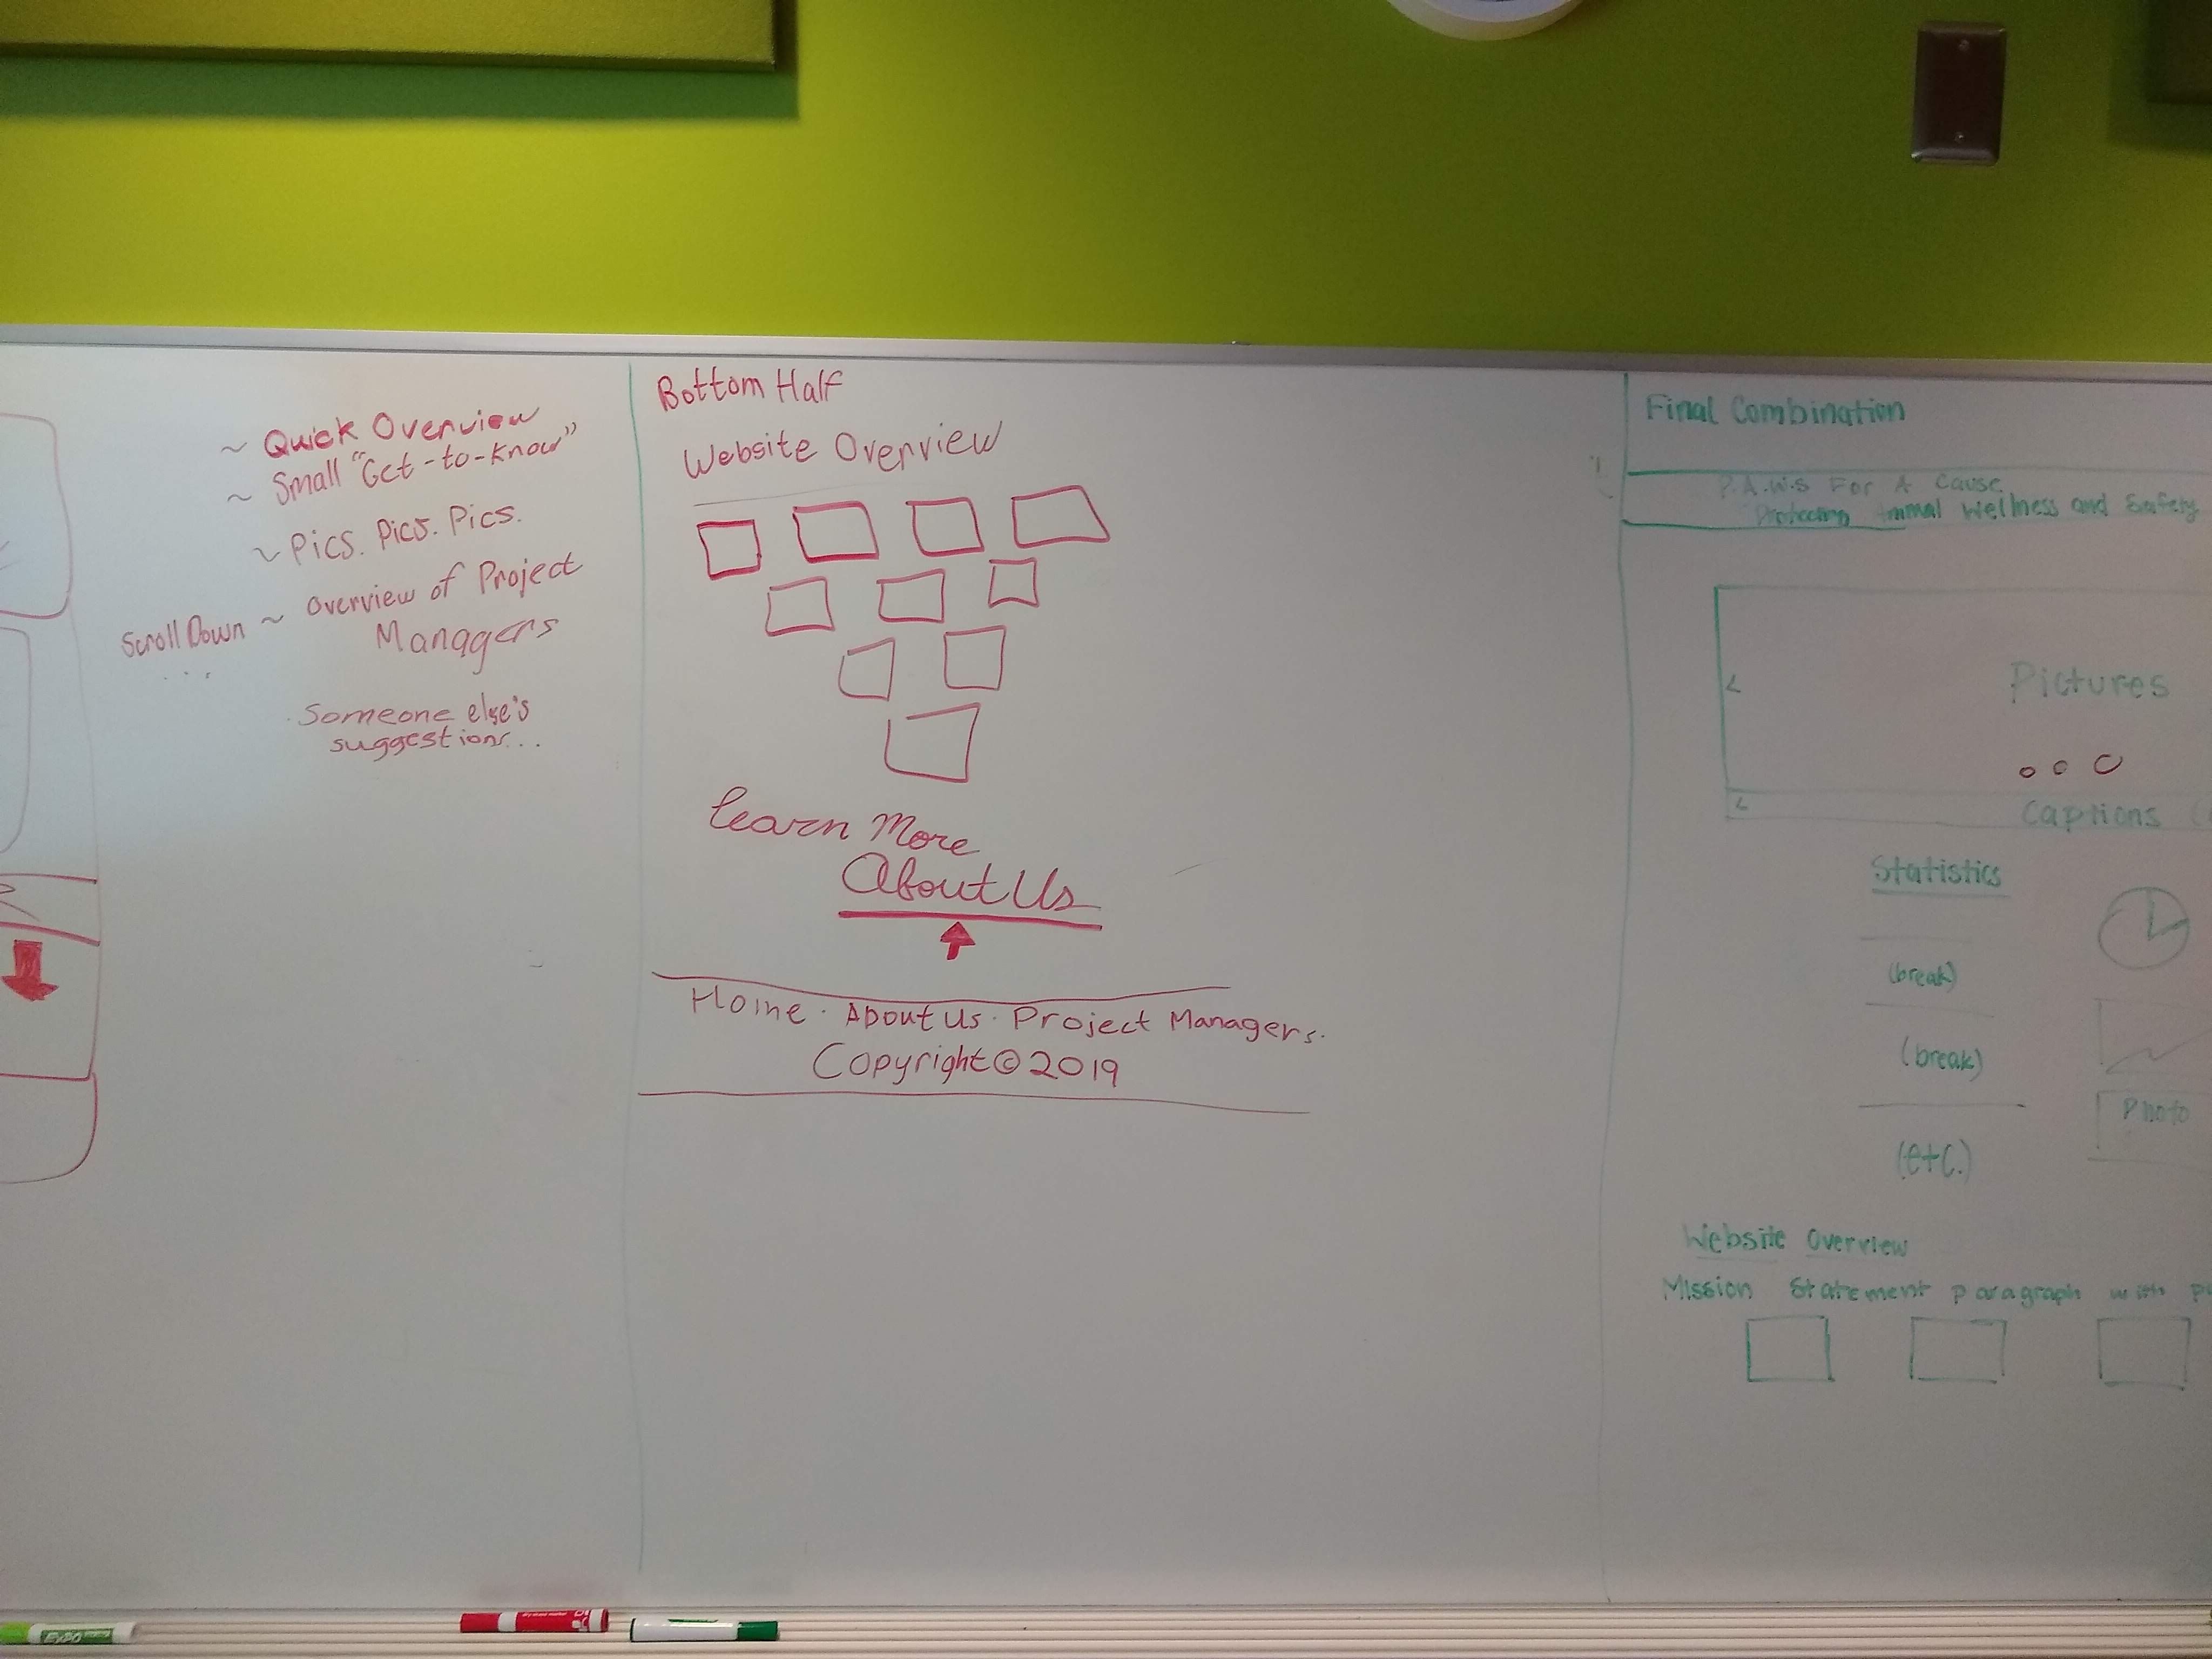 ~ Quick Overview
~ Small "Get-to-know"
~ Pics. Pics. Pics.
Scroll Down ~ Overview of Project
... Managers
Someone else's
suggestions...
Bottom Half
Website Overview
Learn More
About Us
Home · About Us · Project Managers.
Copyright © 2019
Final Combination
P.A.W.s For A Cause
Protecting Animal Wellness and Safety
Pictures
Captions
Statistics
(break)
(break)
Photo
(etc.)
Website Overview
Mission Statement paragraph with
EXPO